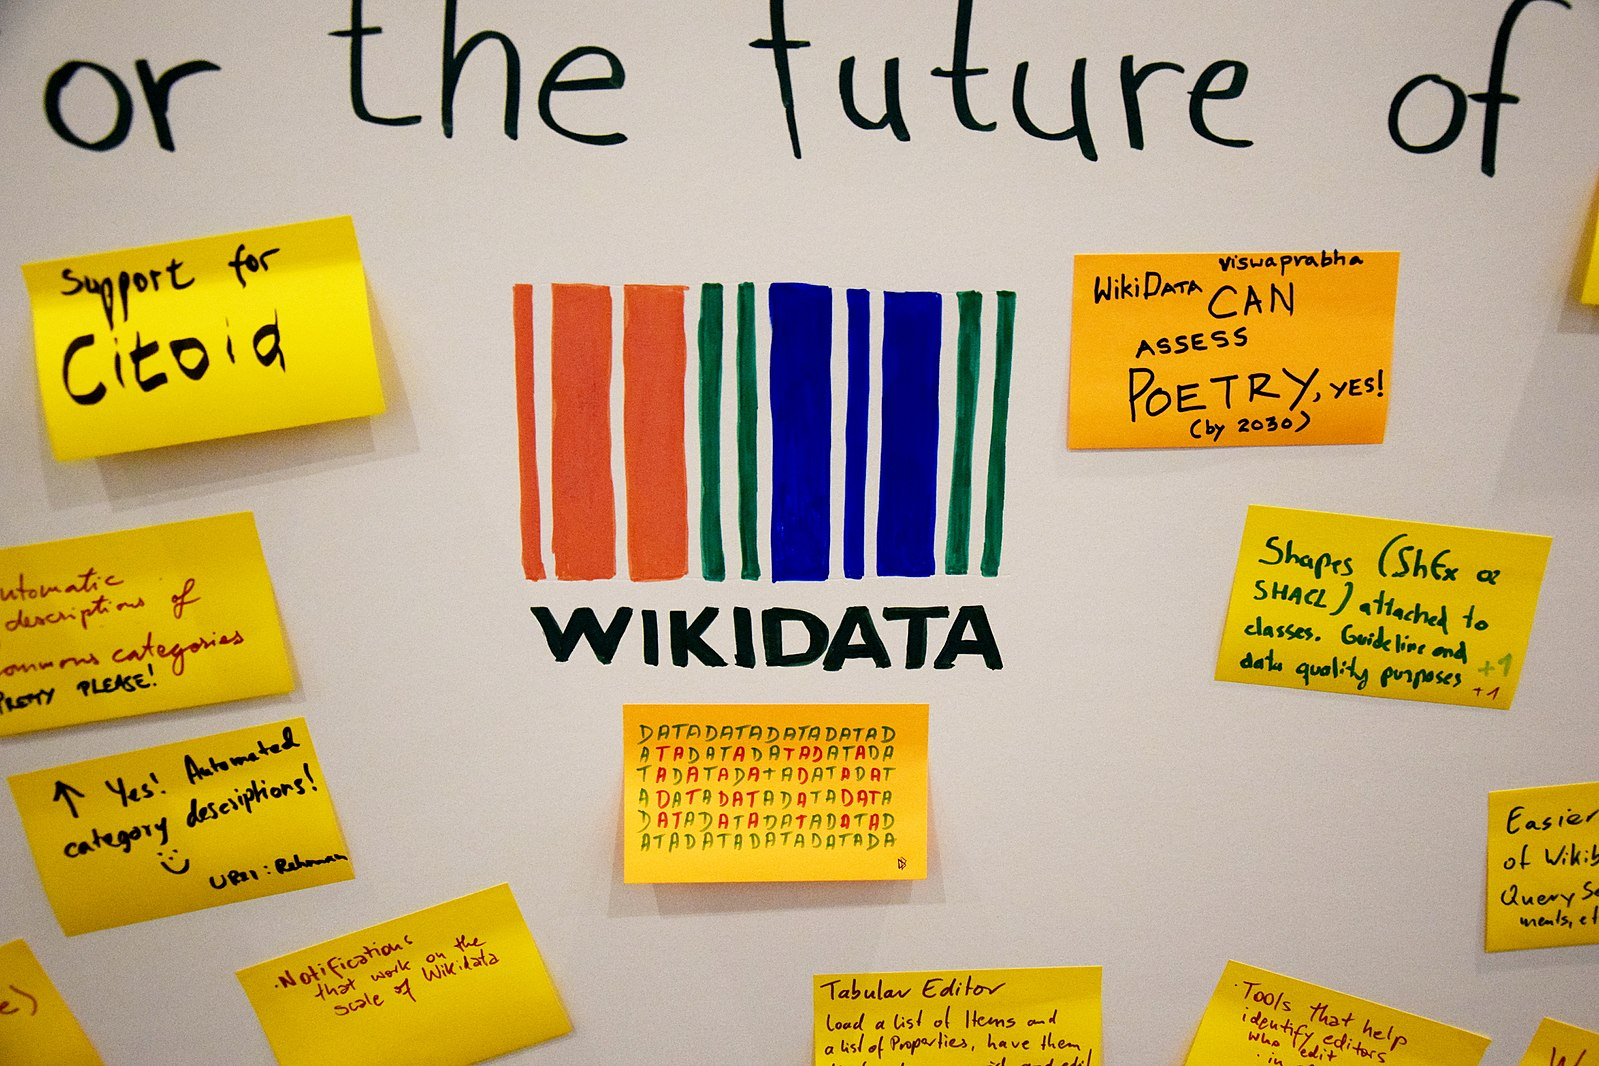 or the future of
Support for
Citoid
viswaprabha
WIKIDATA CAN
ASSESS
POETRY, YES!
(by 2030)
WIKIDATA
Automatic
descriptions of
commons categories
PRETTY PLEASE!
Shapes (ShEx or
SHACL) attached to
classes. Guideline and
data quality purposes +1
+1
↑ Yes! Automated
category descriptions!
URI: Rehman
DATADATADATADATAD
ATADATADATADATADA
TADATADATADATADAT
ADATADATADATADATA
DATADATADATADATAD
ATADATADATADATADA
Easier
of Wikib
Query Se
ments, et
· Notifications
that work on the
scale of Wikidata
Tabular Editor
Load a list of Items and
a list of Properties, have them
· Tools that help
identify editors
who edit
· in
e)
W